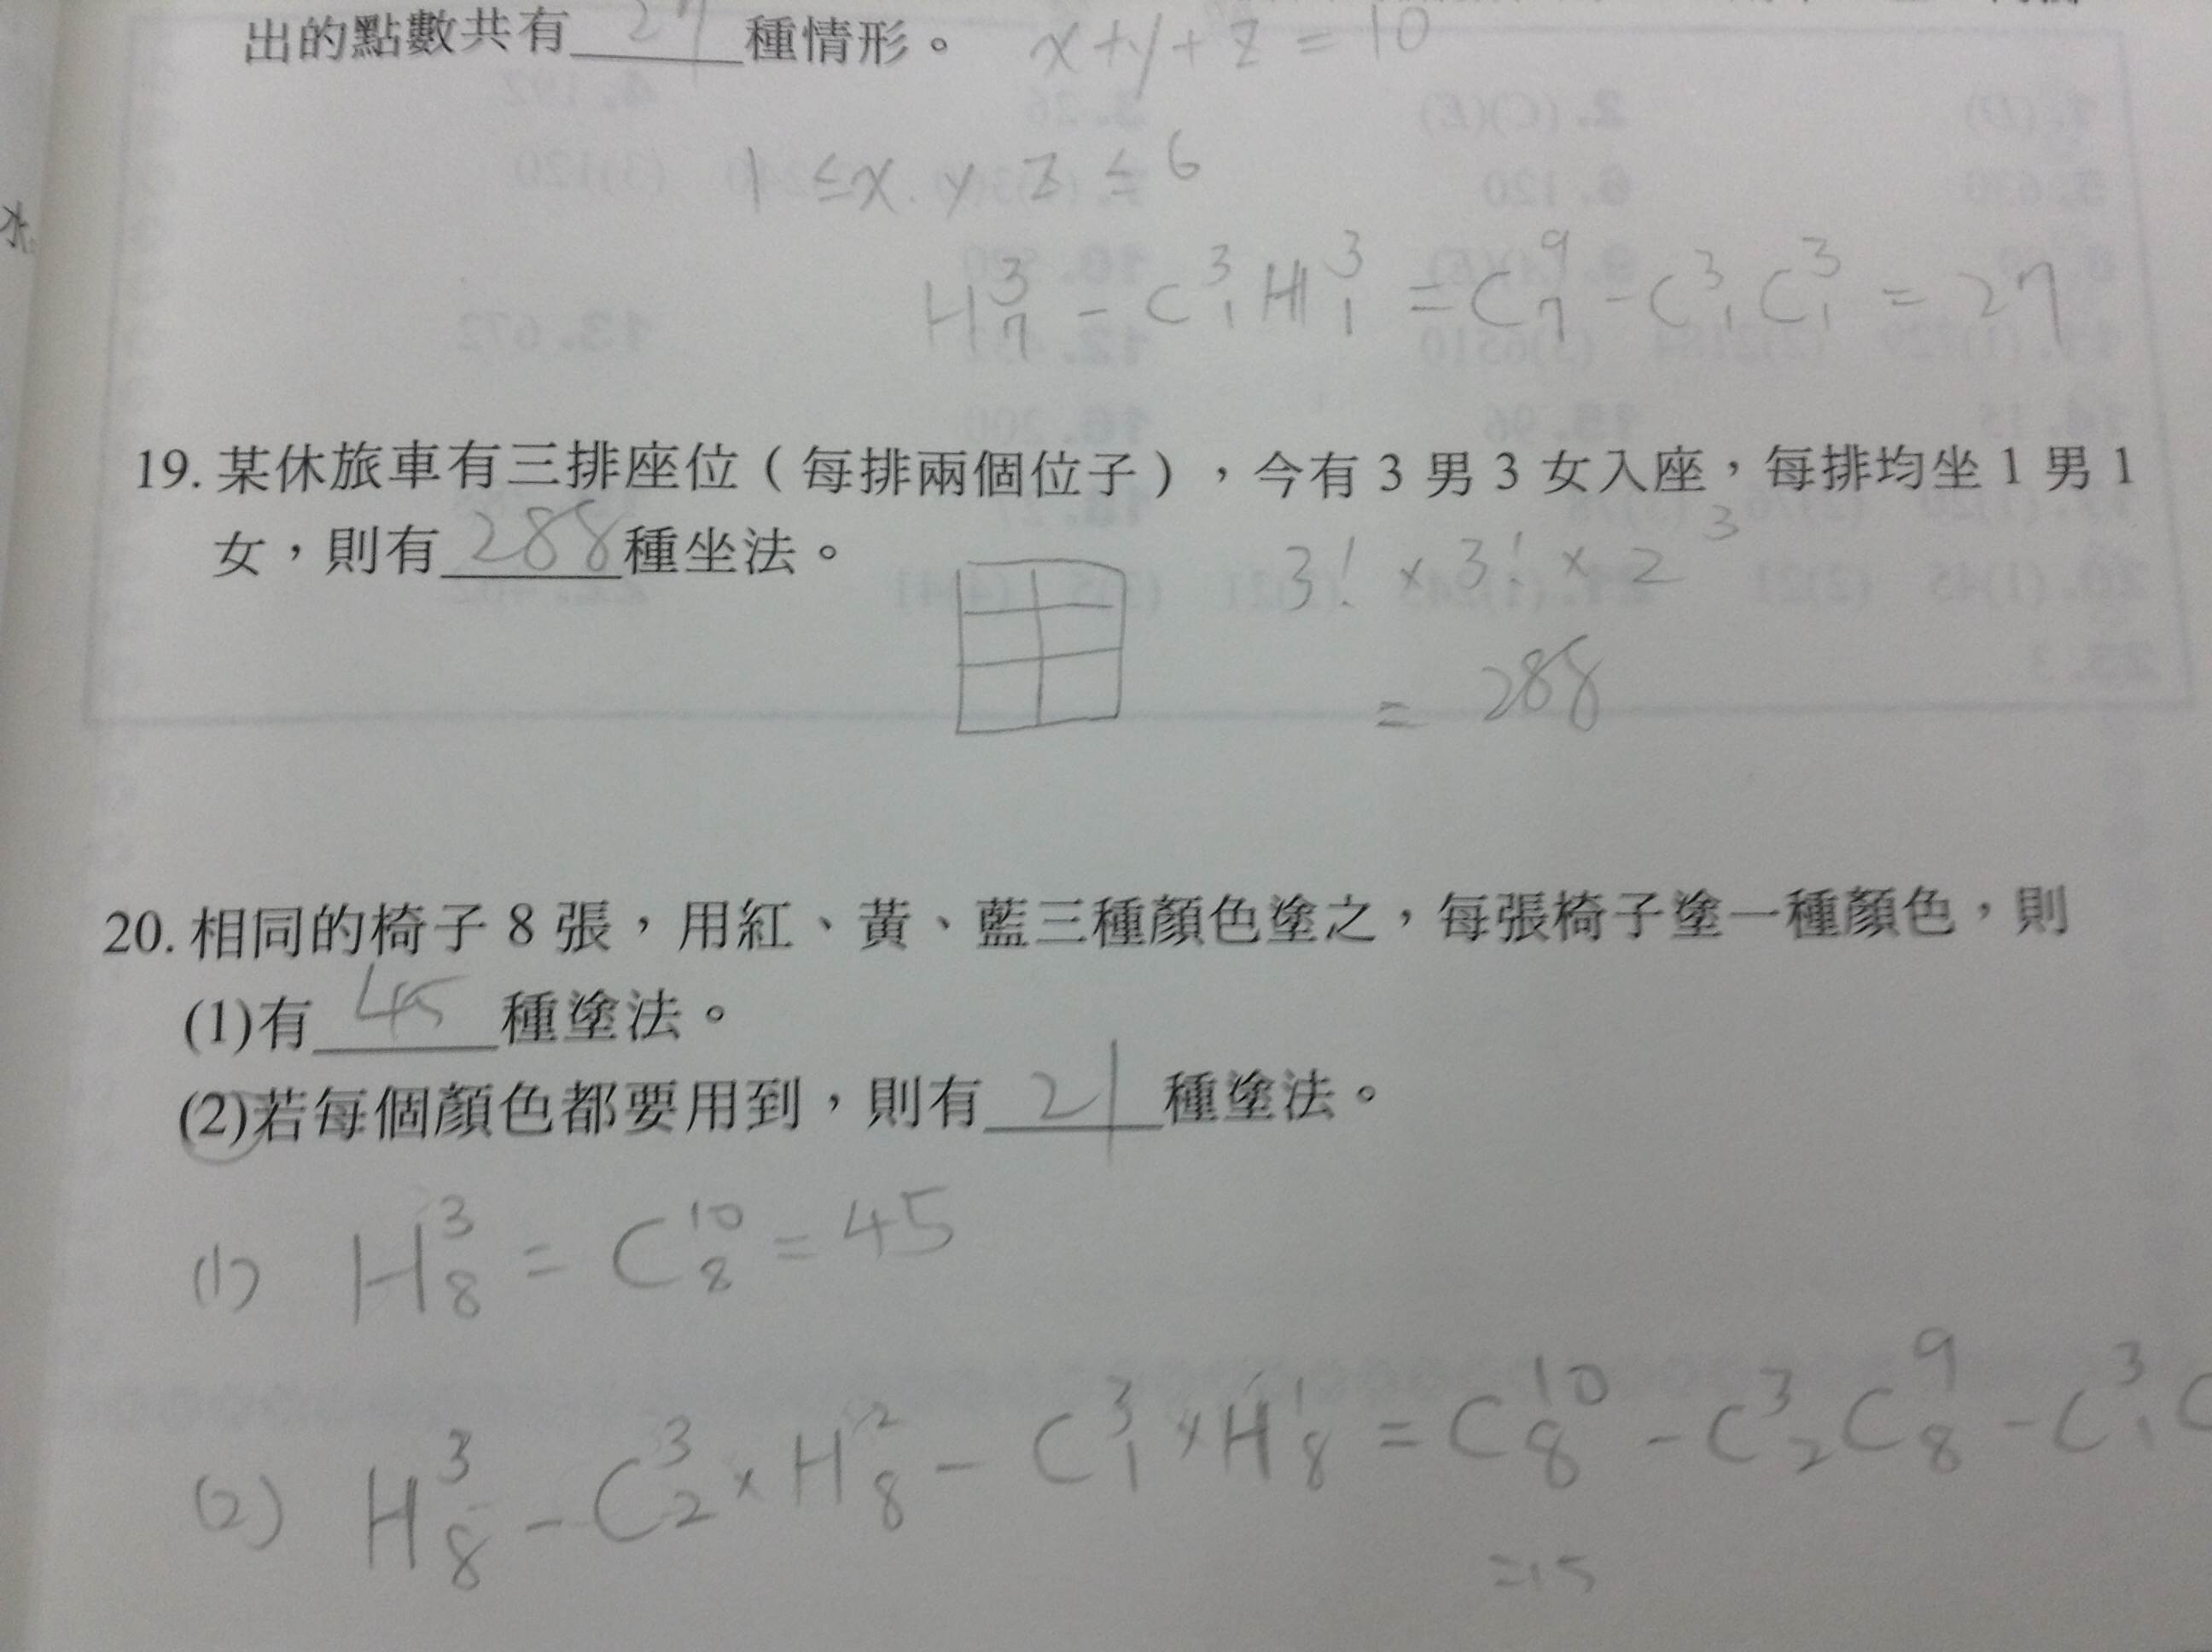 出的點數共有 27 種情形。 x+y+z=10
1≤x.y z≤6
H³₇-C³₁H³₁=C⁹₇-C³₁C³₁=27
19. 某休旅車有三排座位(每排兩個位子),今有3男3女入座,每排均坐1男1
女,則有 288 種坐法。
3!×3!×2³
=288
20. 相同的椅子8張,用紅、黃、藍三種顏色塗之,每張椅子塗一種顏色,則
(1)有 45 種塗法。
(2)若每個顏色都要用到,則有 21 種塗法。
(1) H³₈=C¹⁰₈=45
(2) H³₈-C³₂×H²₈-C³₁×H¹₈=C¹⁰₈-C³₂C⁹₈-C³₁C
=15